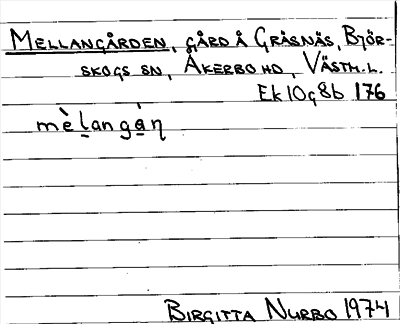 MELLANGÅRDEN, GÅRD Å GRÅSNÄS, BJÖR-
SKOGS SN, ÅKERBO HD, VÄSTM.L.
Ek 10g8b 176
mèḻangá̱ṇ
BIRGITTA NURBO 1974